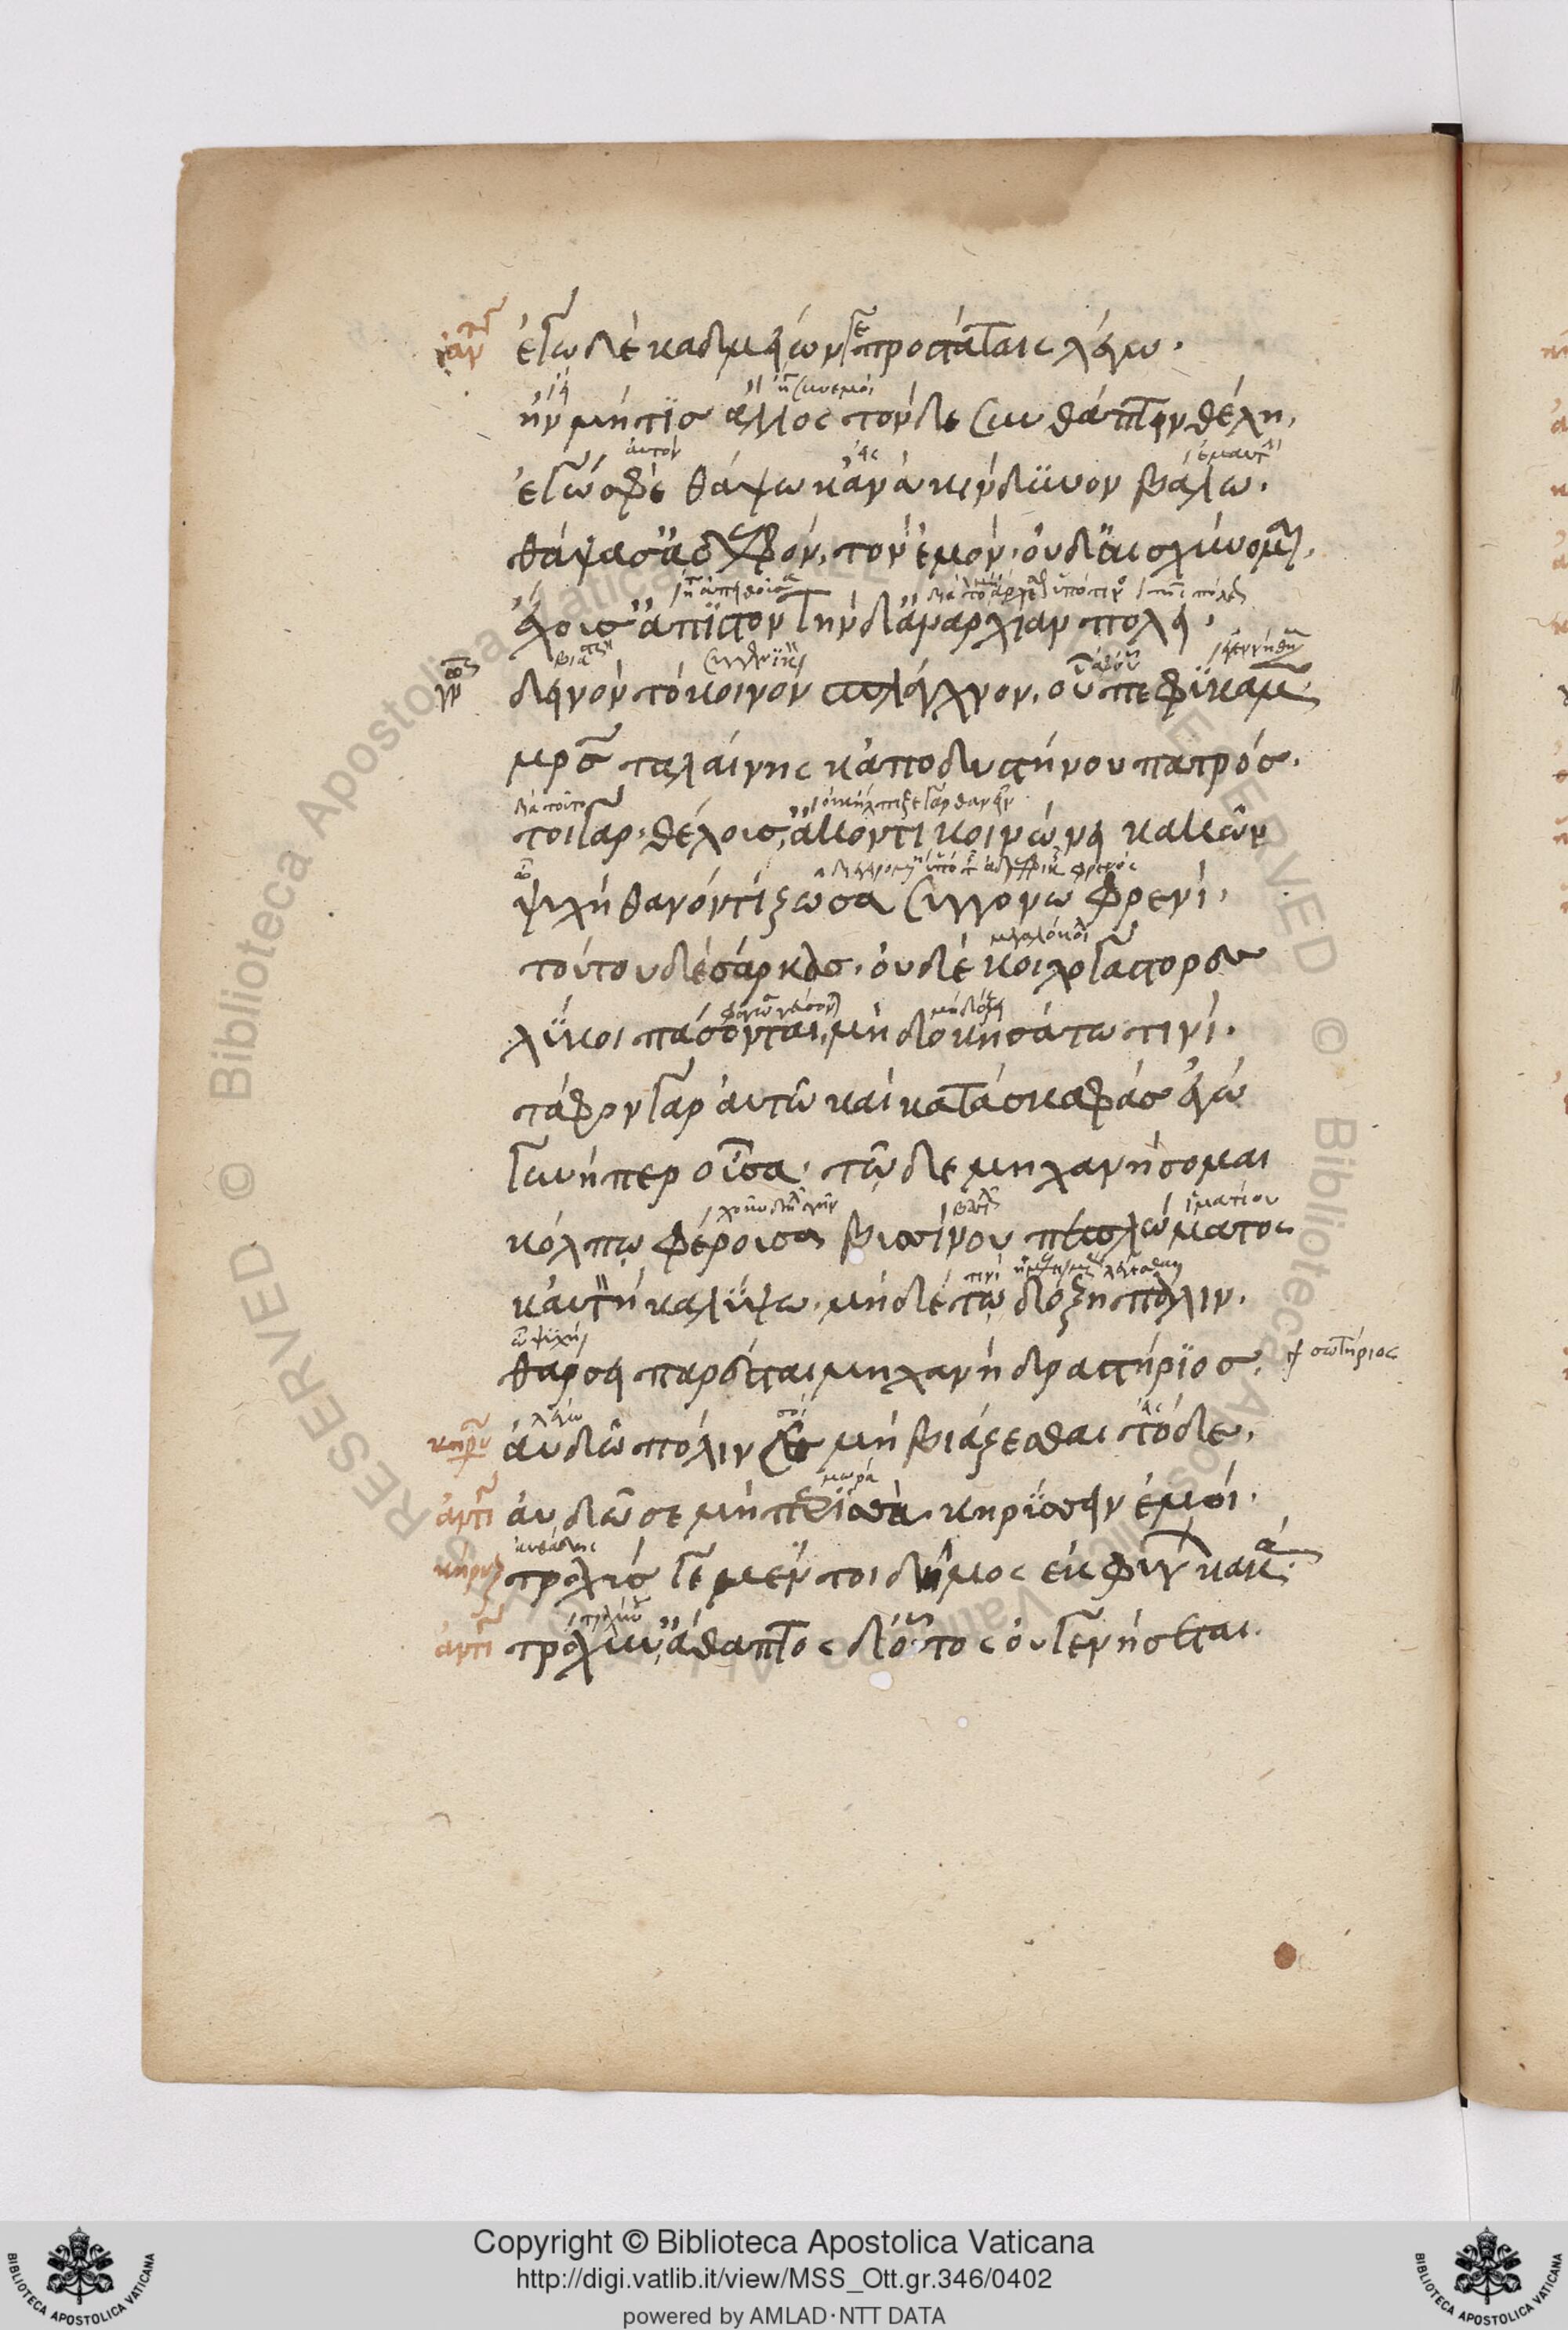 ἐγὼ δὲ καδμείων γε προστάταις λέγω.
ἢν μή τις ἄλλος τόνδε συνθάπτειν θέλη.
αὐτὸν
ἐγώ σφὲ θάψω κἀνὰ κίνδυνον βαλῶ.
θάψασ' ἀδελφὸν τὸν ἐμόν. οὐδ' αἰσχύνομαι.
ἔχουσ' ἄπιστον τήνδ' ἀναρχίαν πόλει.
δεινὸν τὸ κοινὸν σπλάγχνον. οὗ πεφύκαμεν
μρὸς ταλαίνης κἀπὸ δυστήνου πατρός.
διὰ τοῦτο
τοιγὰρ θέλουσ' ἄκοντι κοινώνει κακῶν
ψυχὴ θανόντι ζῶσα συγγόνω φρενί.
τούτου δὲ σάρκας. οὐδὲ κοιλογάστορες
λύκοι πάσονται. μὴ δοκησάτω τινί.
τάφον γὰρ αὐτῶ καὶ κατασκαφὰς ἐγὼ
γυνή περ οὖσα. τῶδε μηχανήσομαι
ἱματίου
κόλπω φέρουσα βυσσίνου πεπλώματος
τινὶ
καὐτὴ καλύψω. μηδέ τω δόξη πάλιν.
ὦ ψυχή
θάρσει παρέσται μηχανὴ δραστήριος. σωτήριος
λέγω σοὶ
αὐδῶ πόλιν σε μὴ βιάζεσθαι τόδε.
αὐδῶ σε μὴ περισσὰ κηρύσσειν ἐμοί.
τραχύς γε μέντοι δῆμος ἐκφυγὼν κακά.
τράχυν'. ἄθαπτος δ' οὗτος οὐ γενήσεται.
Copyright © Biblioteca Apostolica Vaticana
http://digi.vatlib.it/view/MSS_Ott.gr.346/0402
powered by AMLAD·NTT DATA